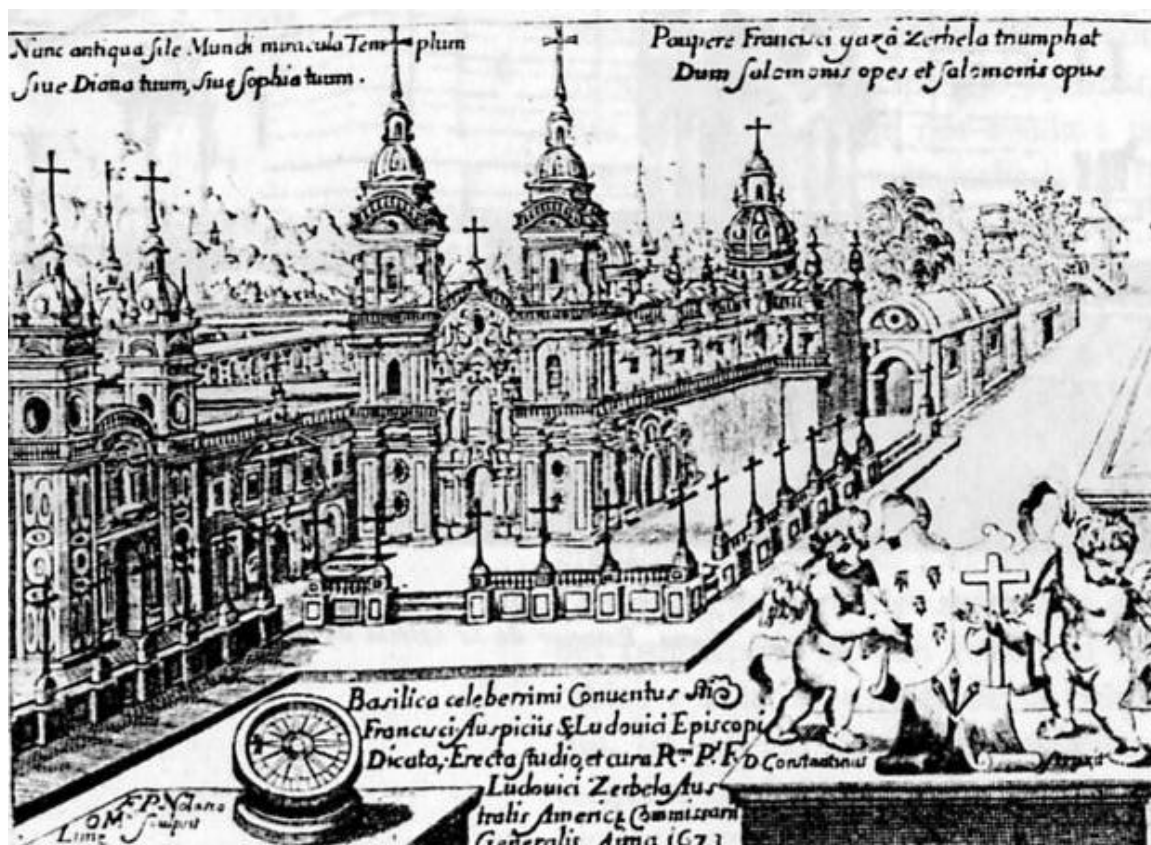 Nunc antiqua sile Mundi miracula Templum
siue Diana tuum, siue sophia tuum.
Paupere Francisci gaza Zerbela triumphat
Dum salomonis opes et salomonis opus
Basilica celeberrimi Conuentus Sti
Francisci Auspiciis S. Ludouici Episcopi
Dicata, Erecta studio, et cura Rmi P. F.
Ludouici Zerbela Aus
tralis Americę Commissarii
Generalis Anno 1673
D Constantinus
F. P. Nolasco
OM sculpsit
Limę